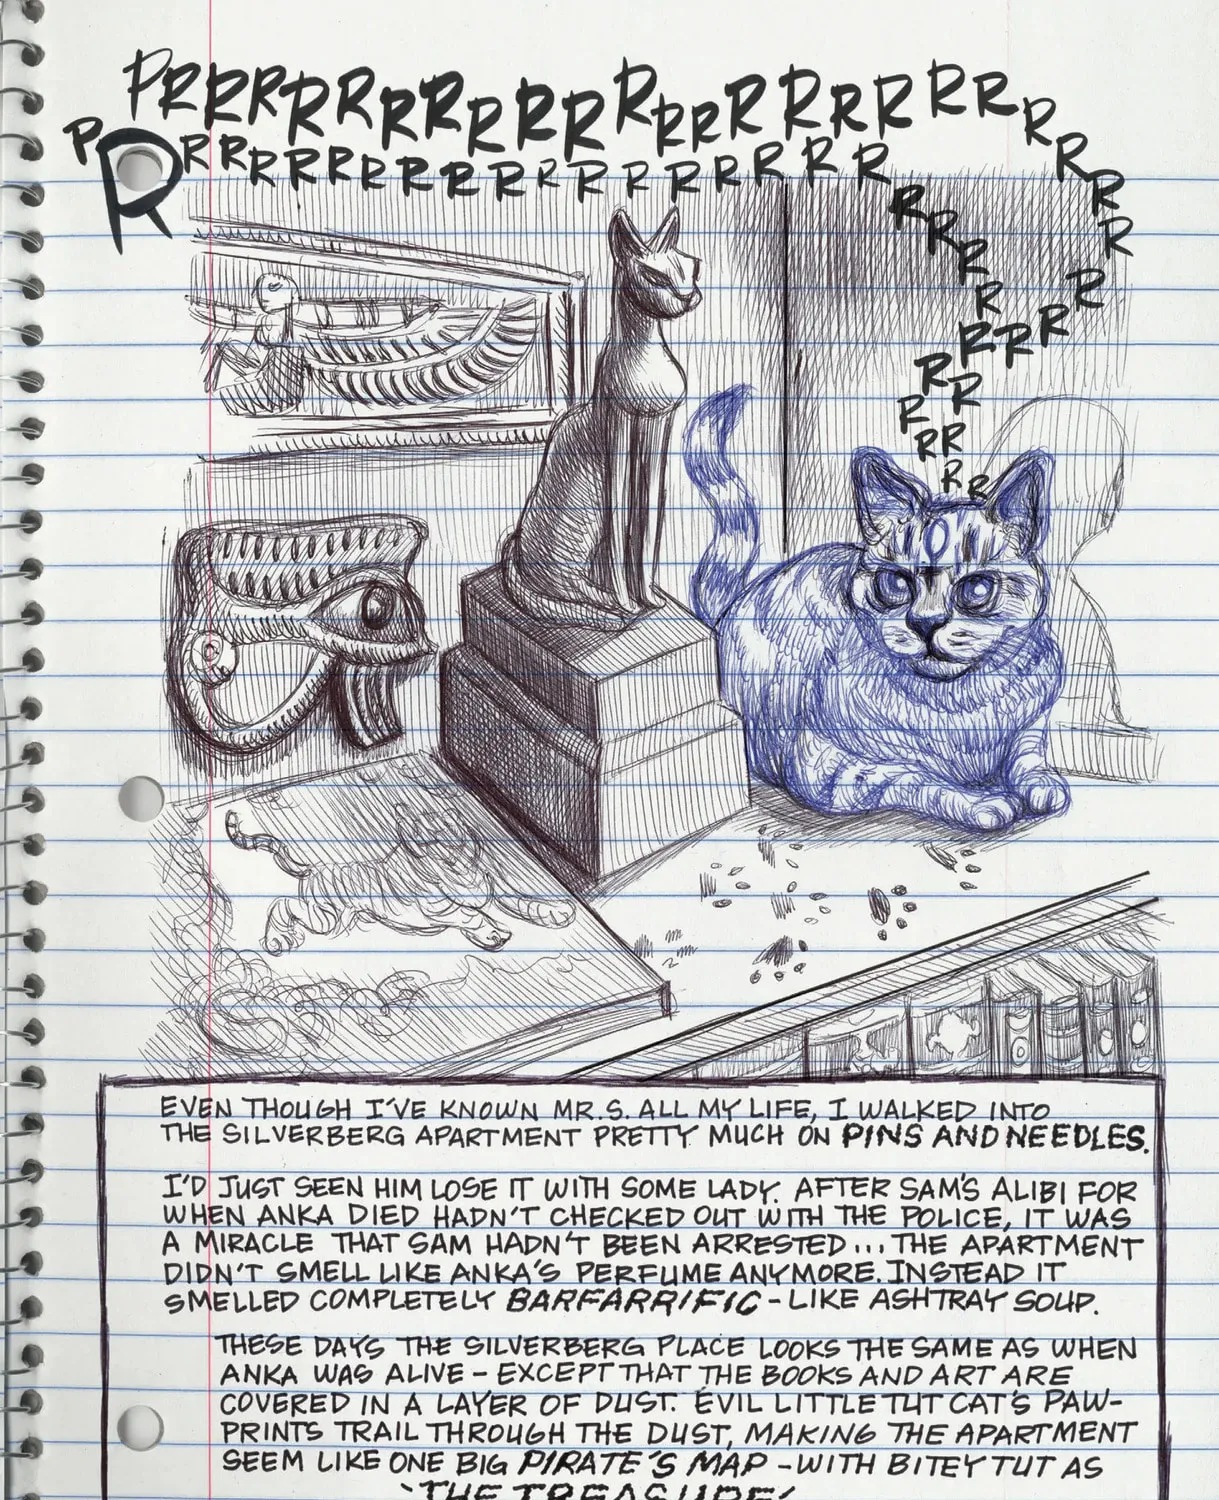 PRRRRRRRRRRRRRRRRRRRRRRRRRRRRRRRR
PRRRRRRRRRRRRRRRRRRRRRRRRRRRRR
EVEN THOUGH I'VE KNOWN MR. S. ALL MY LIFE, I WALKED INTO
THE SILVERBERG APARTMENT PRETTY MUCH ON PINS AND NEEDLES.
I'D JUST SEEN HIM LOSE IT WITH SOME LADY. AFTER SAM'S ALIBI FOR
WHEN ANKA DIED HADN'T CHECKED OUT WITH THE POLICE, IT WAS
A MIRACLE THAT SAM HADN'T BEEN ARRESTED... THE APARTMENT
DIDN'T SMELL LIKE ANKA'S PERFUME ANYMORE. INSTEAD IT
SMELLED COMPLETELY BARFARRIFIC - LIKE ASHTRAY SOUP.
THESE DAYS THE SILVERBERG PLACE LOOKS THE SAME AS WHEN
ANKA WAS ALIVE - EXCEPT THAT THE BOOKS AND ART ARE
COVERED IN A LAYER OF DUST. EVIL LITTLE TUT CAT'S PAW-
PRINTS TRAIL THROUGH THE DUST, MAKING THE APARTMENT
SEEM LIKE ONE BIG PIRATE'S MAP - WITH BITEY TUT AS
'THE TREASURE'